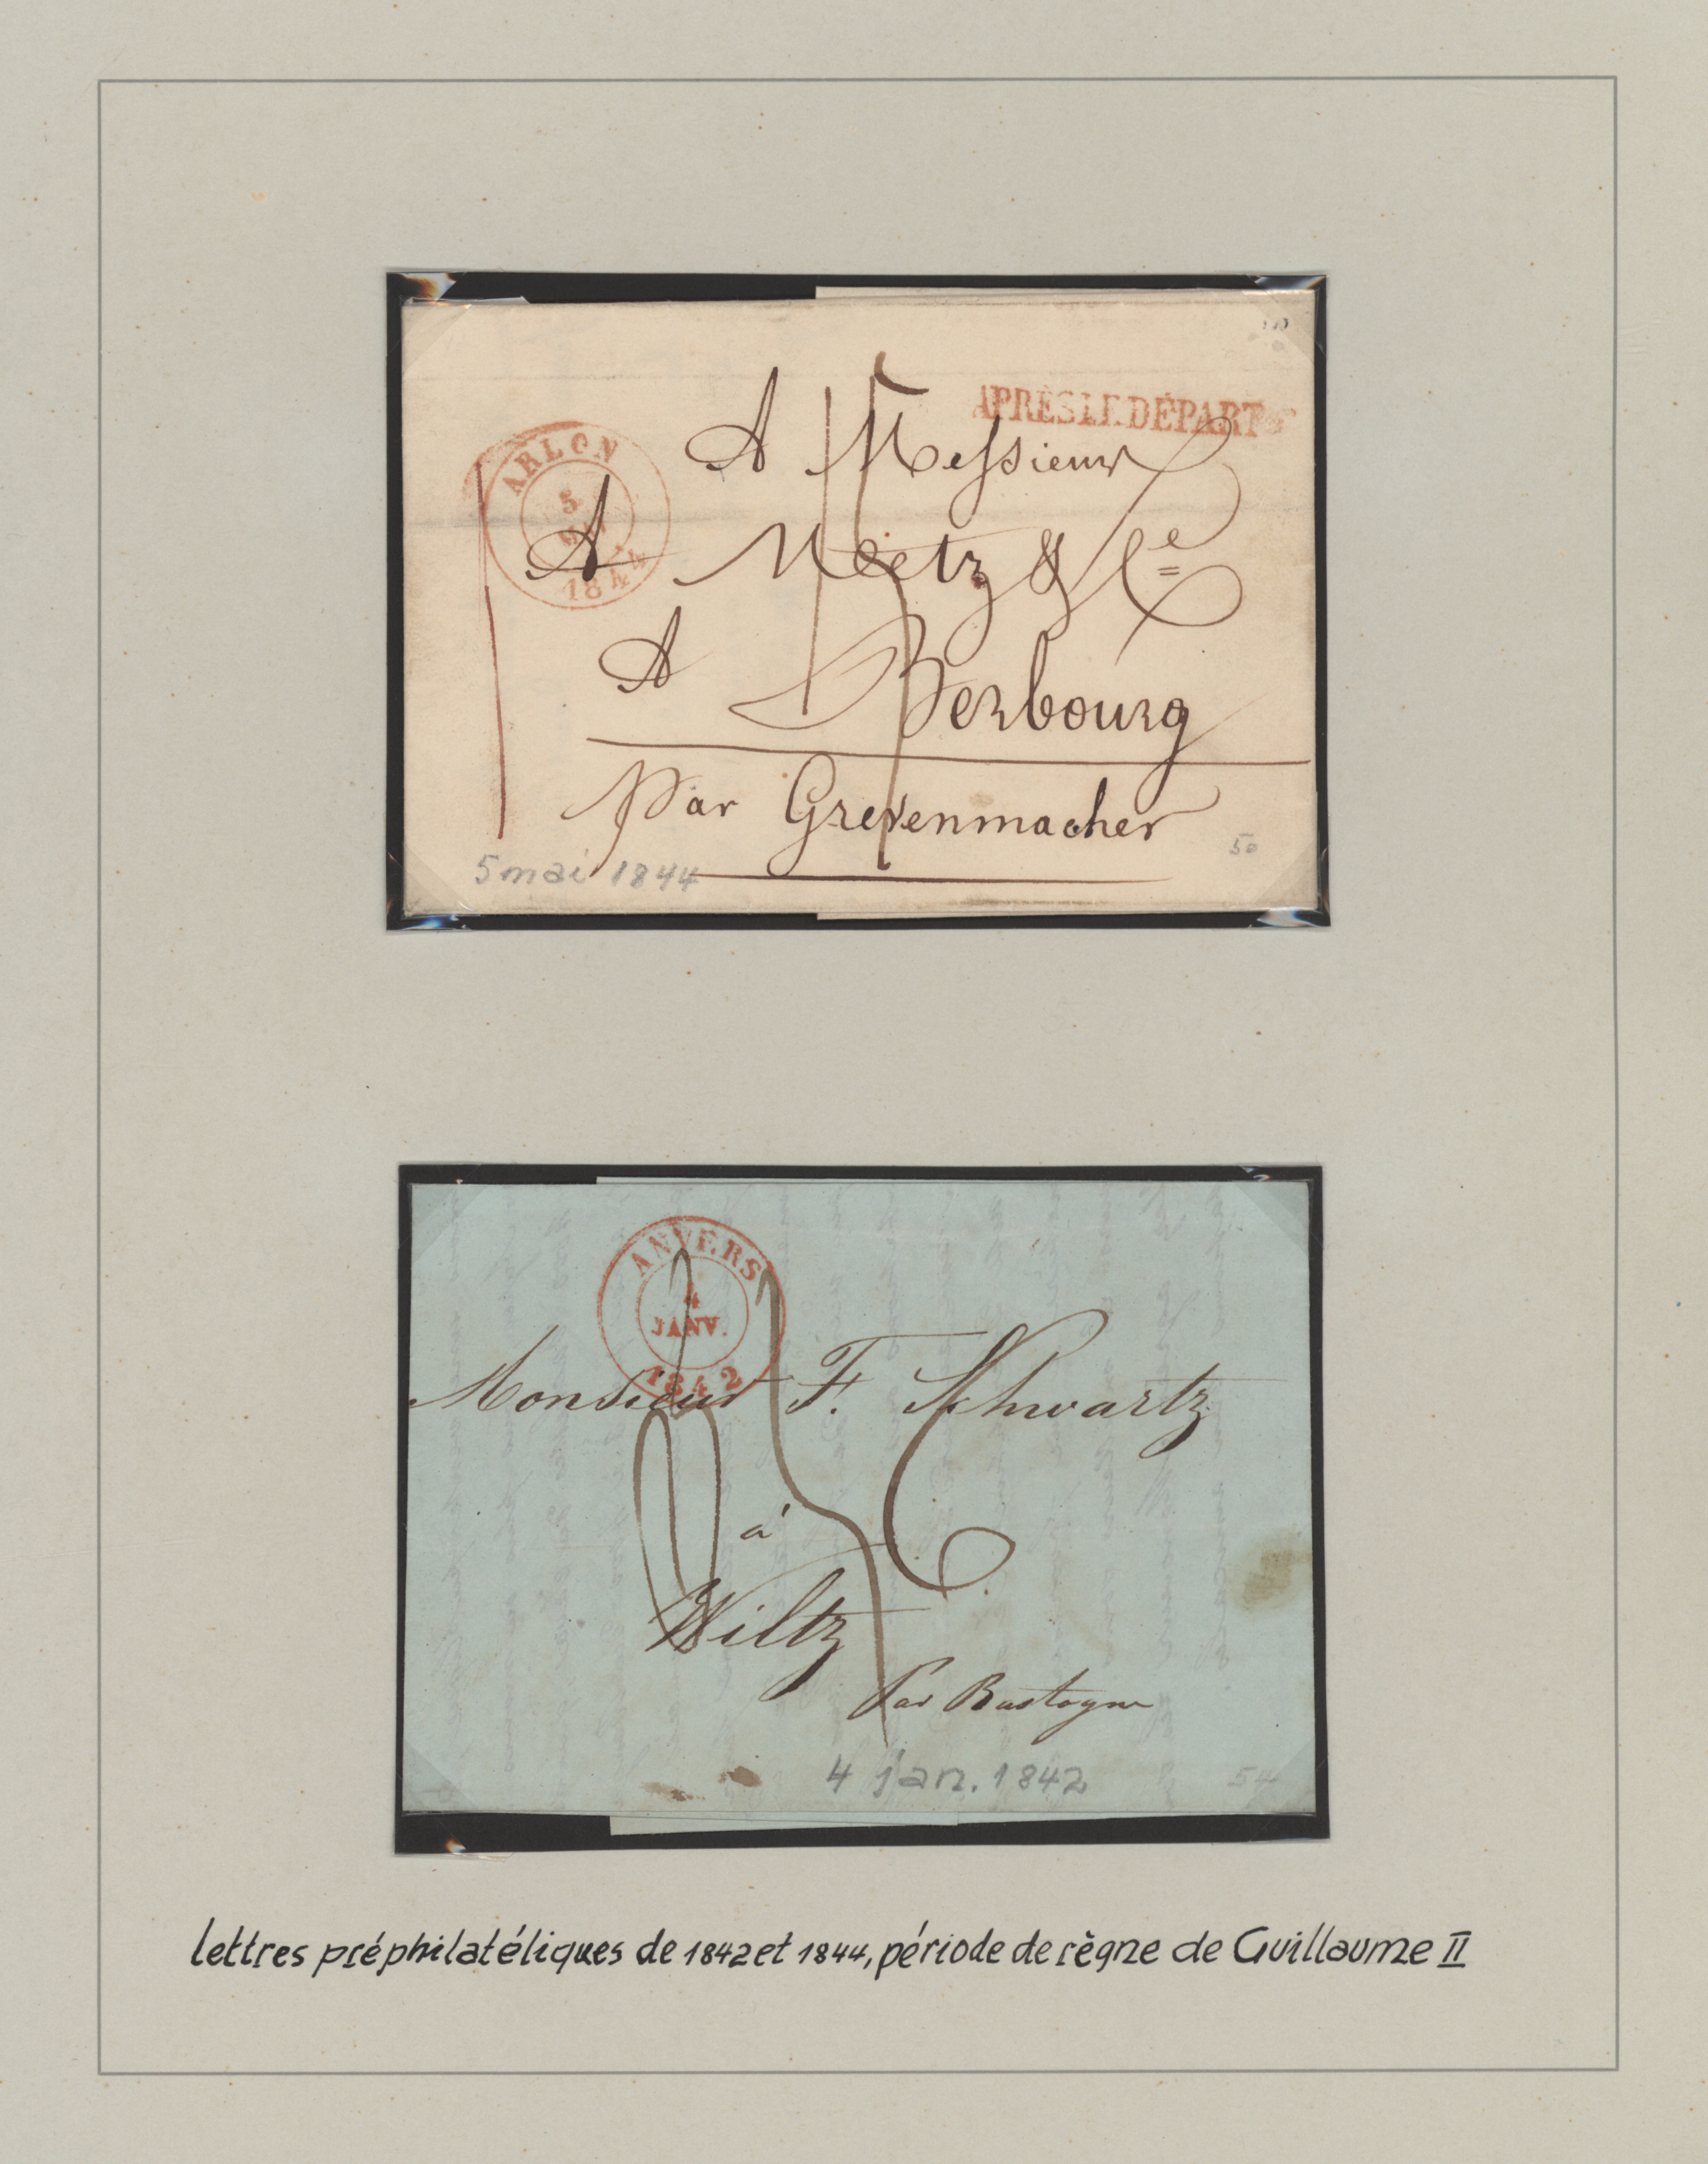 APRÈS LE DÉPART
ARLON
5
1844
A Messieurs
A Metz & Ce
A Berbourg
par Grevenmacher
5 mai 1844
50
ANVERS
4
JANV.
1842
Monsieur F. Schwartz
à
Wiltz
Par Bastogne
4 jan. 1842
54
lettres préphilatéliques de 1842 et 1844, période de règne de Guillaume II